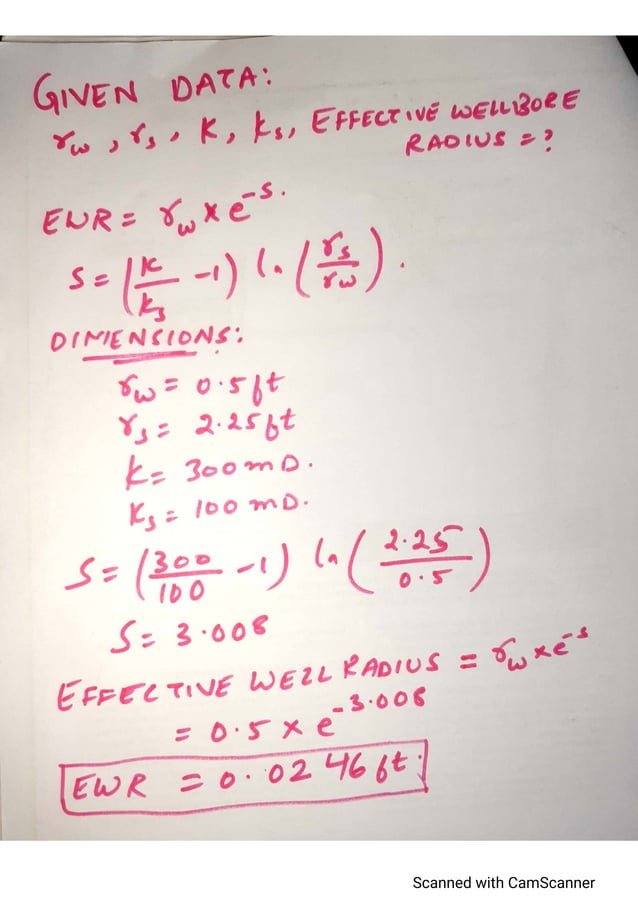 GIVEN DATA:
rw, rs, K, ks, EFFECTIVE WELLBORE
RADIUS = ?
EWR = rw x e^-s.
S = (k/ks - 1) ln (rs/rw).
DIMENSIONS:
rw = 0.5ft
rs = 2.25ft
k = 300mD.
Ks = 100 mD.
S = (300/100 - 1) ln (2.25/0.5)
S = 3.008
EFFECTIVE WELL RADIUS = rw x e^-s
= 0.5 x e^-3.008
EWR = 0.0246 ft.
Scanned with CamScanner